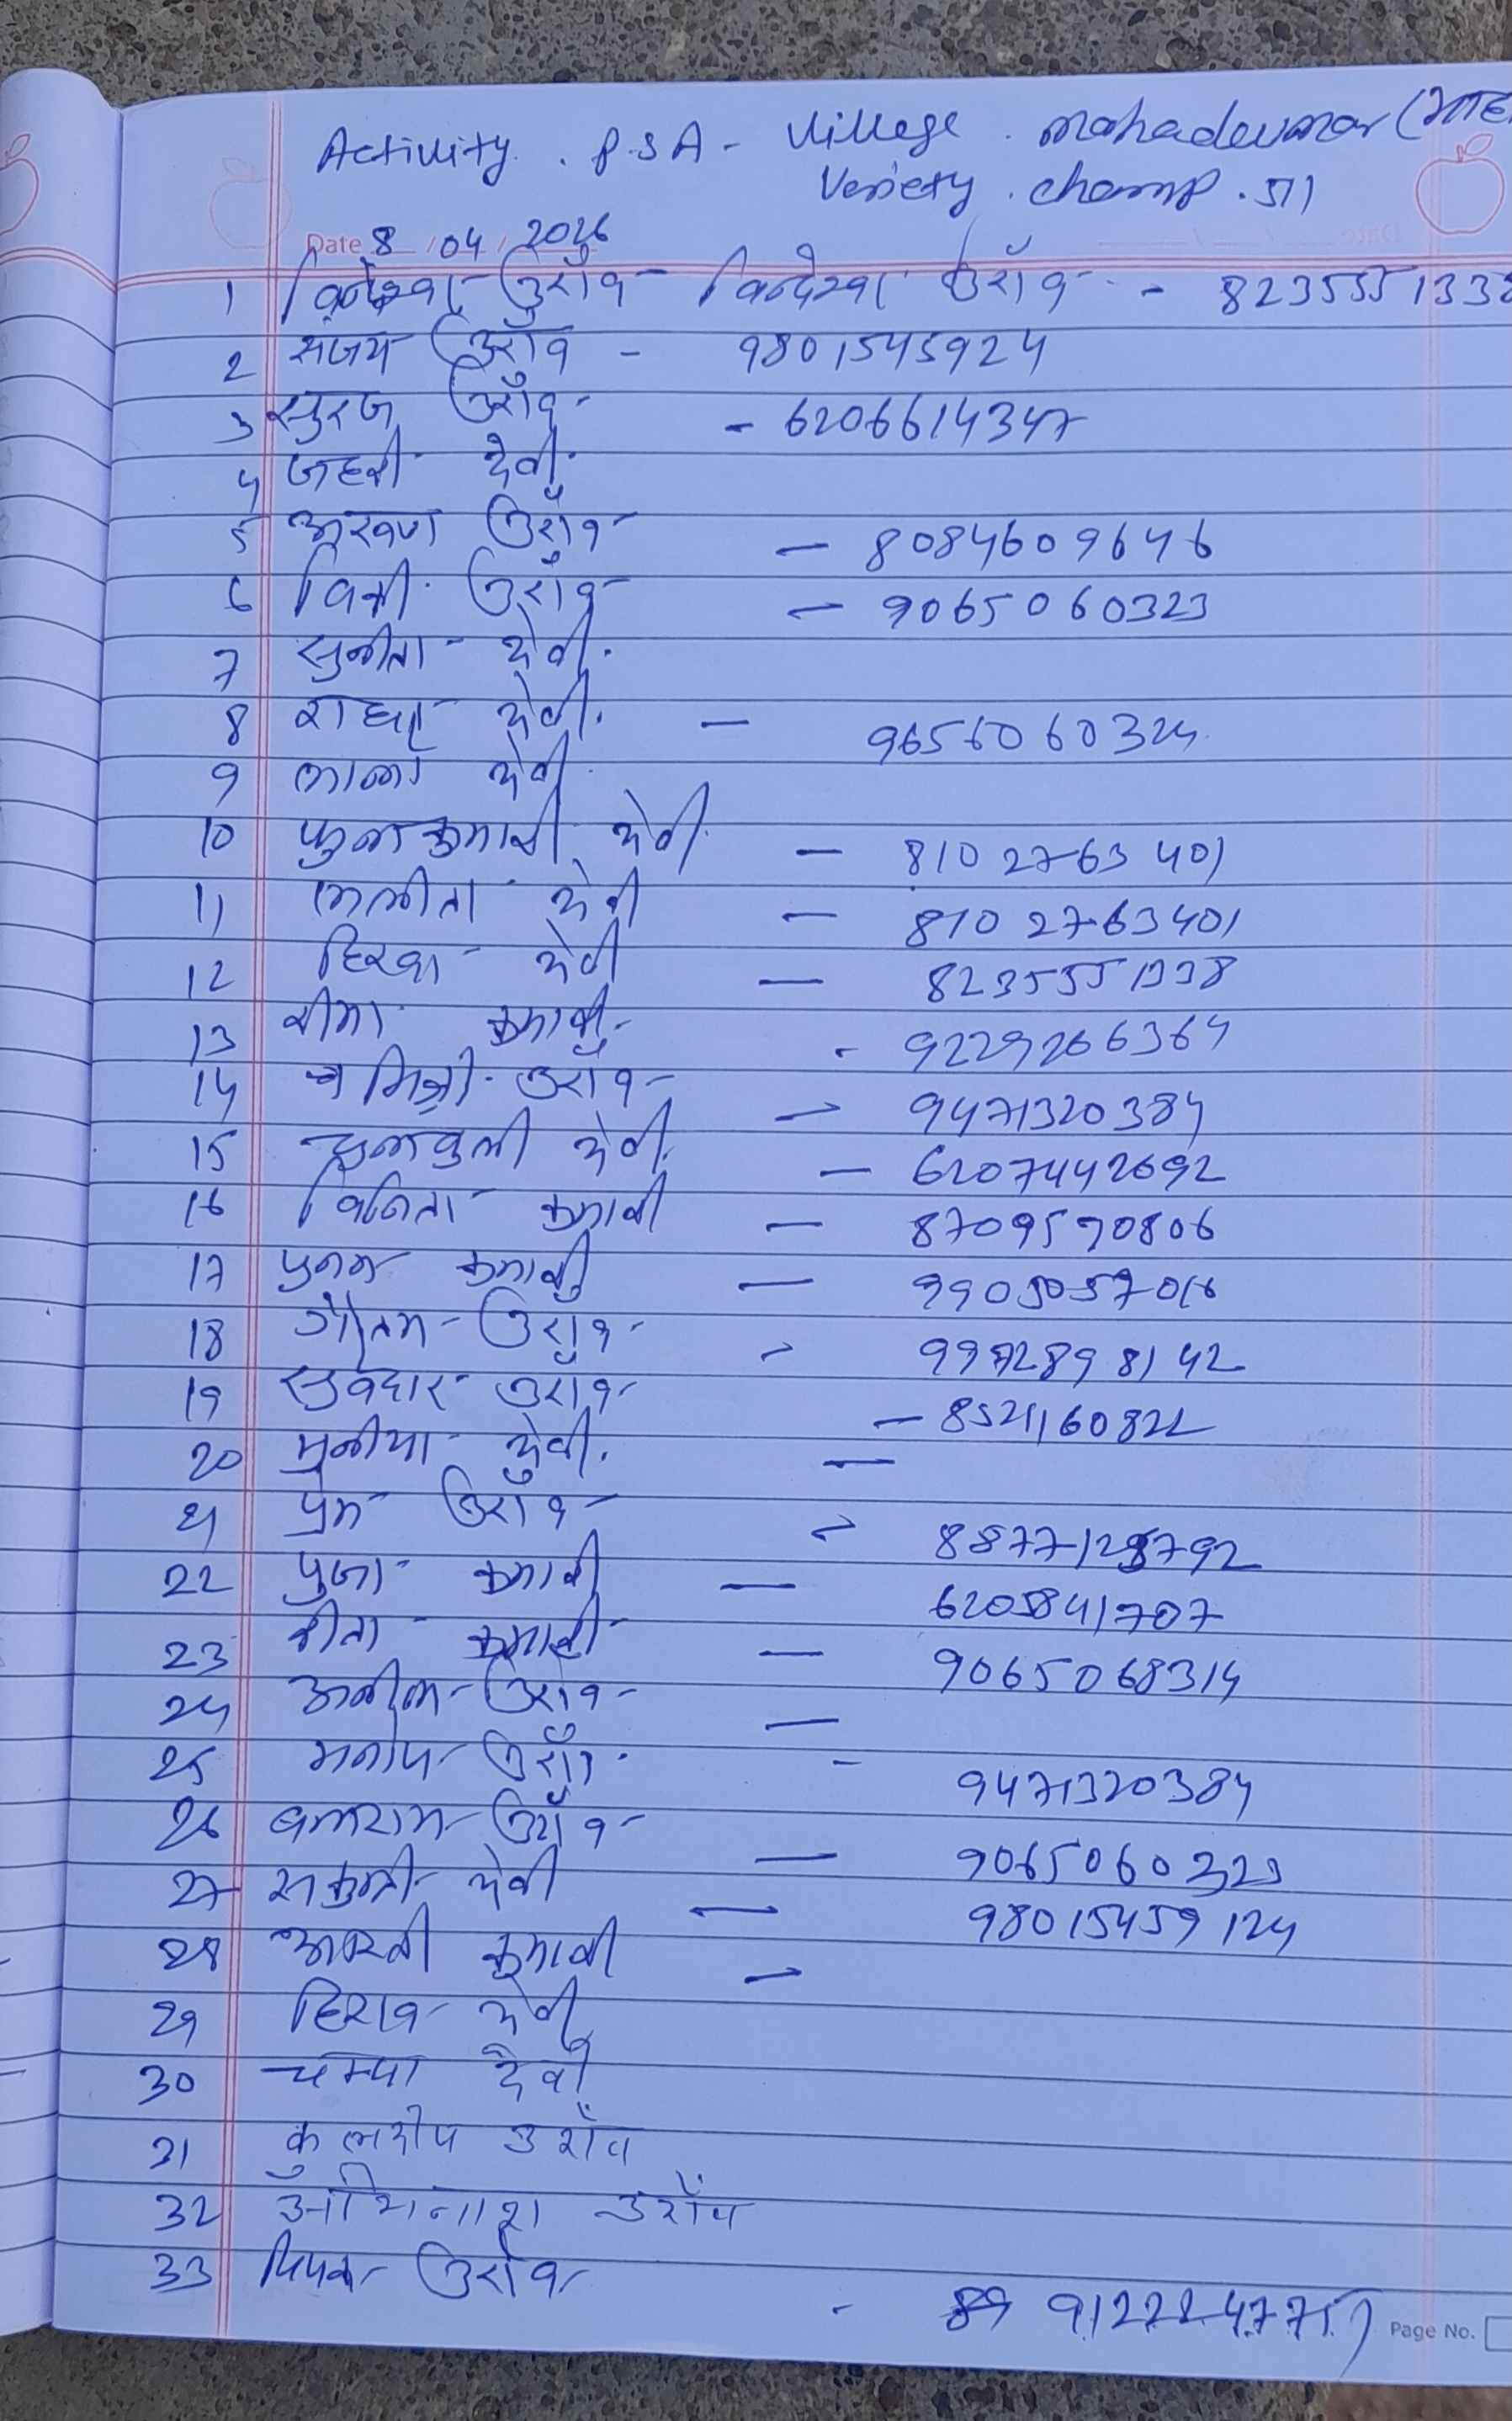 Activity. P.S.A - Village. mahadevmar
Variety. champ. 511
Date 8/04/2026
1 विन्देश्वर उराँव विन्देश्वर उराँव - 823555133
2 संजय उराँव - 9801545924
3 सुरज उराँव - 6206614347
4 जहरी देवी
5 अरुण उराँव - 8084609646
6 उराँव - 9065060323
7 सुनीता देवी
8 राधा देवी - 9656060324
9 देवी
10 फुलकुमारी देवी - 8102763401
11 ललीता देवी - 8102763401
12 देवी - 8235551338
13 सीमा कुमारी - 9229266364
14 उराँव - 9471320384
15 देवी - 6207442692
16 विनिता कुमारी - 8709570806
17 पुनम कुमारी -
18 गौतम उराँव - 9972898142
19 सुबेदार उराँव - 8521160822
20 मुनीया देवी -
21 प्रेम उराँव -
22 पुजा कुमारी - 6205841707
23 कुमारी - 9065068314
24 अनील उराँव -
25 मनोज उराँव - 9471320384
26 बलराम उराँव - 9065060323
27 देवी - 98015459124
28 आरती कुमारी -
29 देवी
30 चम्पा देवी
31 कुलदीप उराँव
32 अविनाश उराँव
33 दिपक उराँव - 9122247757
Page No.